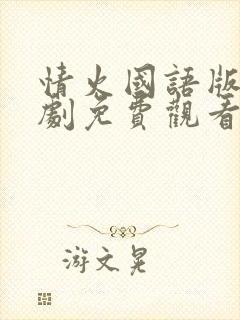 情火國語版
劇免費觀看
游文晃